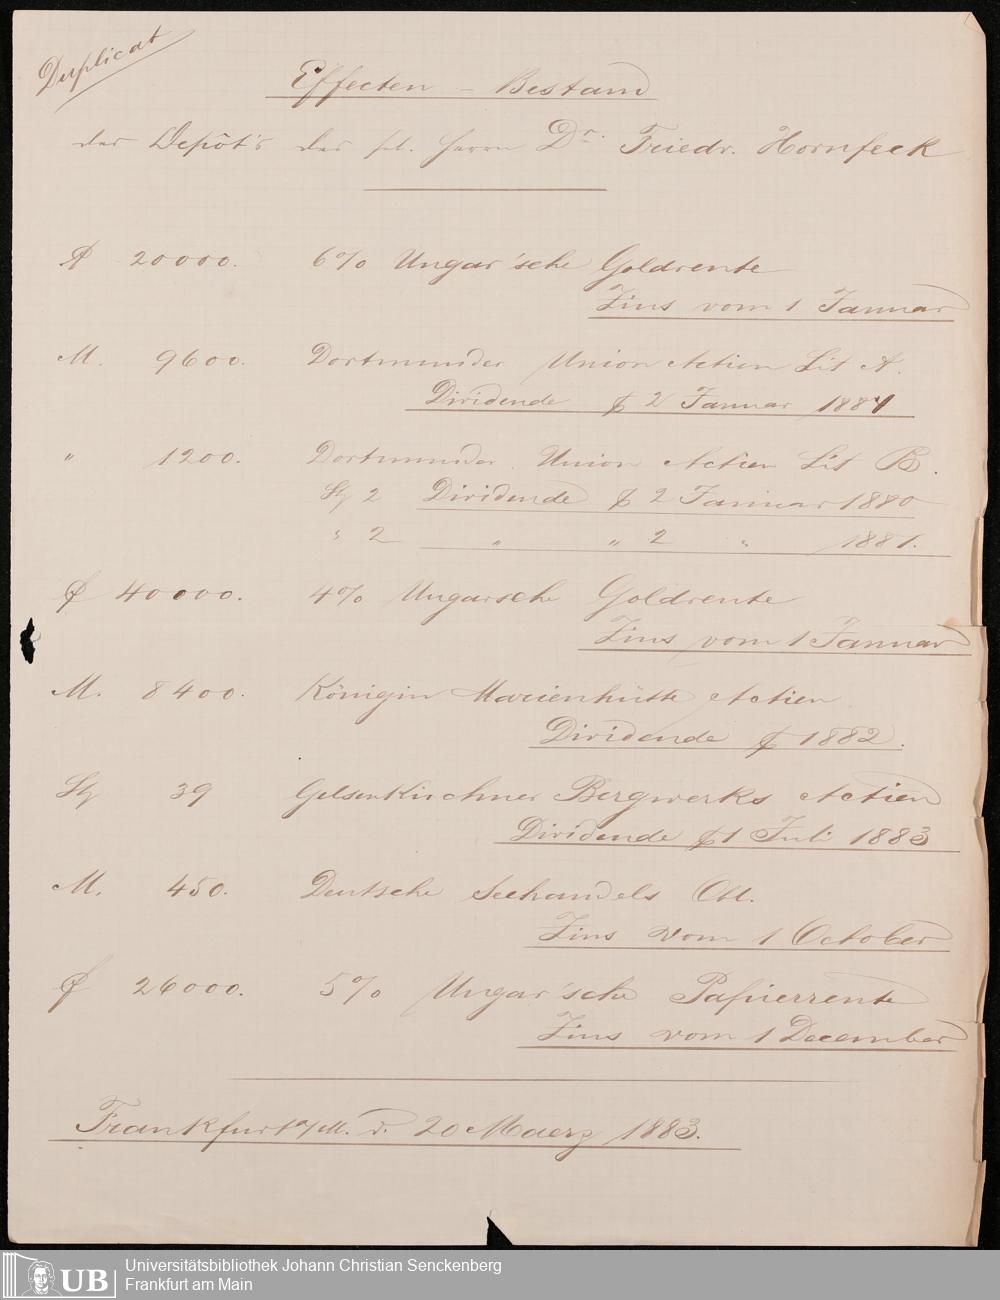 Duplicat
Effecten - Bestand
des Depôt's des sel. Herrn Dr. Friedr. Hornfeck
20000. 6% Ungar'sche Goldrente
Zins vom 1 Januar
M. 9600. Dortmunder Union Actien Lit A.
Dividende 2 Januar 1884
" 1200. Dortmunder Union Actien Lit B.
Stg 2 Dividende 2 Januar 1880
" 2 " " 2 " 1881.
40000. 4% Ungarsche Goldrente
Zins vom 1 Januar
M. 8400. Königin Marienhütte Actien
Dividende 1882.
Stg 39 Gelsenkirchner Bergwerks Actien
Dividende 1 Juli 1883
M. 450. Deutsche Seehandels Obl.
Zins vom 1 October
26000. 5% Ungar'sche Papierrente
Zins vom 1 December
Frankfurt a/M. d. 20 Maerz 1883.
UB
Universitätsbibliothek Johann Christian Senckenberg
Frankfurt am Main